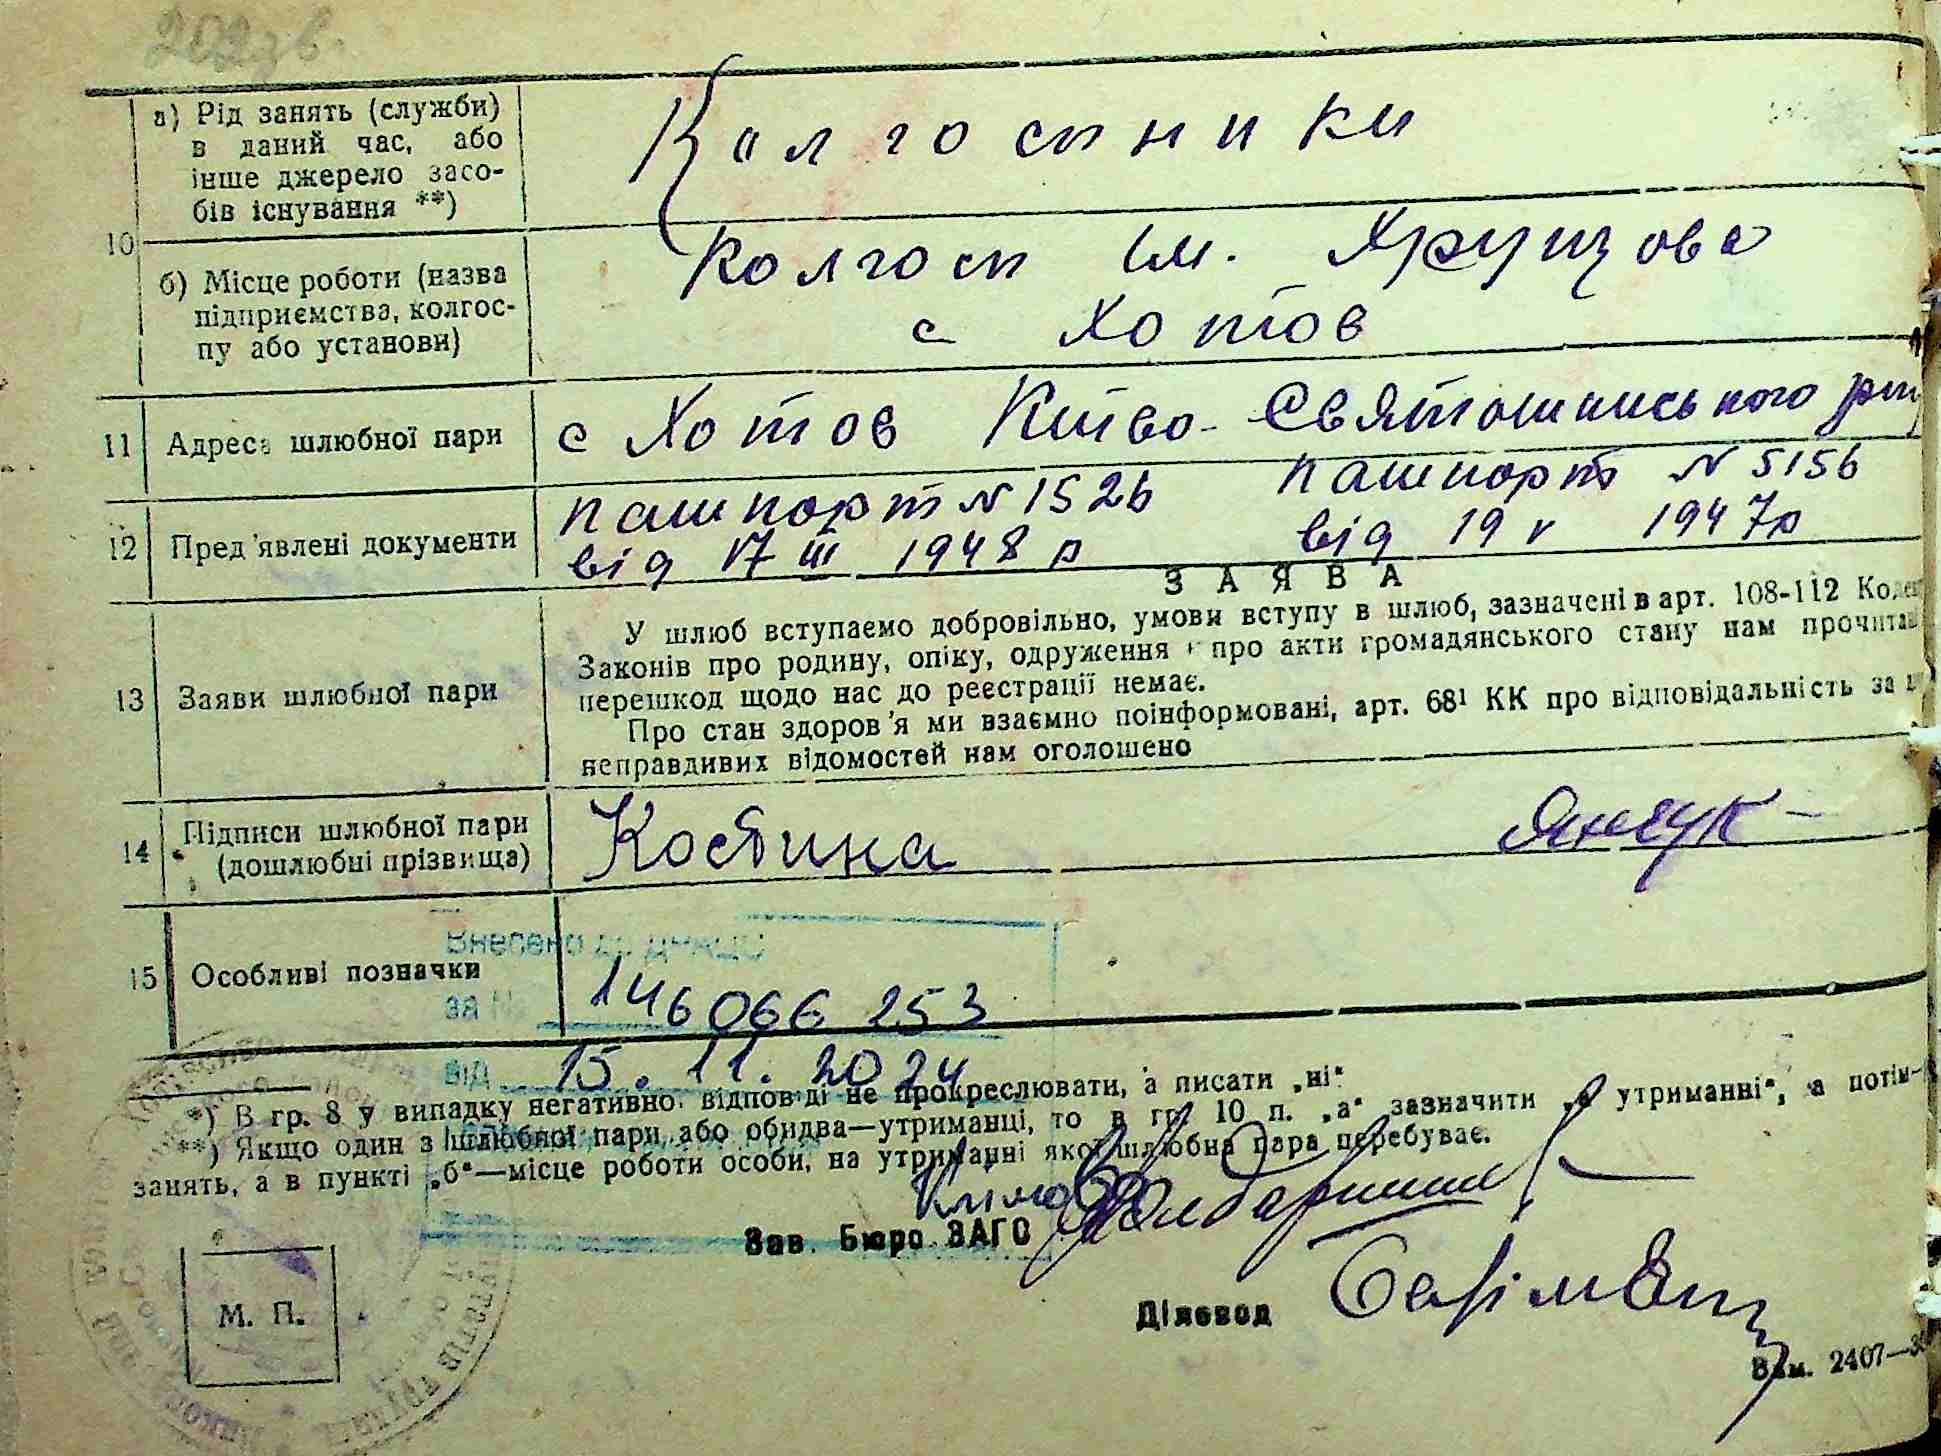 202зв.
10
а) Рід занять (служби)
в даний час, або
інше джерело засо-
бів існування **)
Колгоспники
б) Місце роботи (назва
підприємства, колгос-
пу або установи)
Колгосп ім. Хрущова
с Хотов
11 Адреса шлюбної пари
с Хотов Києво-Святошинського р-ну
12 Пред'явлені документи
пашпорт N 1526
від 17 III 1948 р
пашпорт N 5156
від 19 V 1947р
ЗАЯВА
13 Заяви шлюбної пари
У шлюб вступаємо добровільно, умови вступу в шлюб, зазначені в арт. 108-112
Законів про родину, опіку, одруження про акти громадянського стану нам
перешкод щодо нас до реєстрації немає.
Про стан здоров'я ми взаємно поінформовані, арт. 68¹ КК про відповідальність за
неправдивих відомостей нам оголошено
14 Підписи шлюбної пари
(дошлюбні прізвища)
Костина
Янчук
15 Особливі позначки
Внесено до ДРАЦС
за №
146066 253
від 15.11.2024
*) В гр. 8 у випадку негативної відповіді не прокреслювати, а писати „ні“
**) Якщо один з шлюбної пари або обидва—утриманці, то в гр. 10 п. „а“ зазначити „на утриманні“, а потім—
занять, а в пункті „б“—місце роботи особи, на утриманні якої шлюбна пара перебуває.
Зав. Бюро ЗАГС
Діловод
М. П.
Зам. 2407—